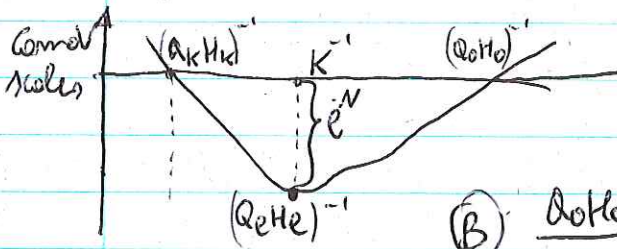 Comov scales
(a_K H_K)^{-1}
K^{-1}
(a_0 H_0)^{-1}
e^N
(a_e H_e)^{-1}
(B) a_0 H_0